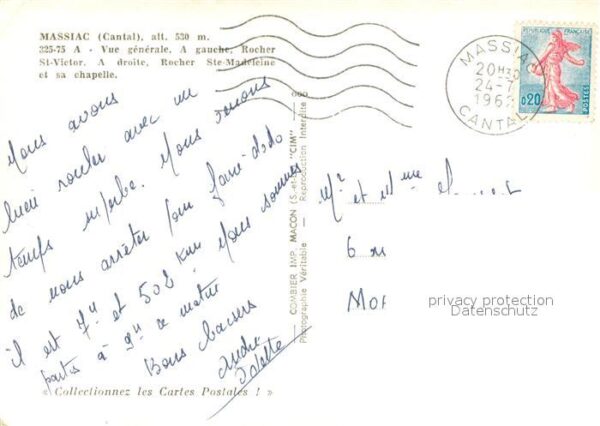 MASSIAC (Cantal), alt. 530 m.
325-75 A - Vue générale. A gauche, Rocher
St-Victor. A droite, Rocher Ste-Madeleine
et sa chapelle.
Nous avons
bien rouler avec un
temps superbe. Nous venons
de nous arrêter pour faire dodo
il est 7H et 508 km Nous sommes
partis à 9H ce matin
Bons baisers
André
« Collectionnez les Cartes Postales ! »
COMBIER IMP. MACON (S.-et-L.) "CIM"
Photographie Véritable - Reproduction Interdite
MASSIAC
20H30
24-7
1962
CANTAL
0,20
POSTES
Mr et Mme
6
privacy protection
Datenschutz